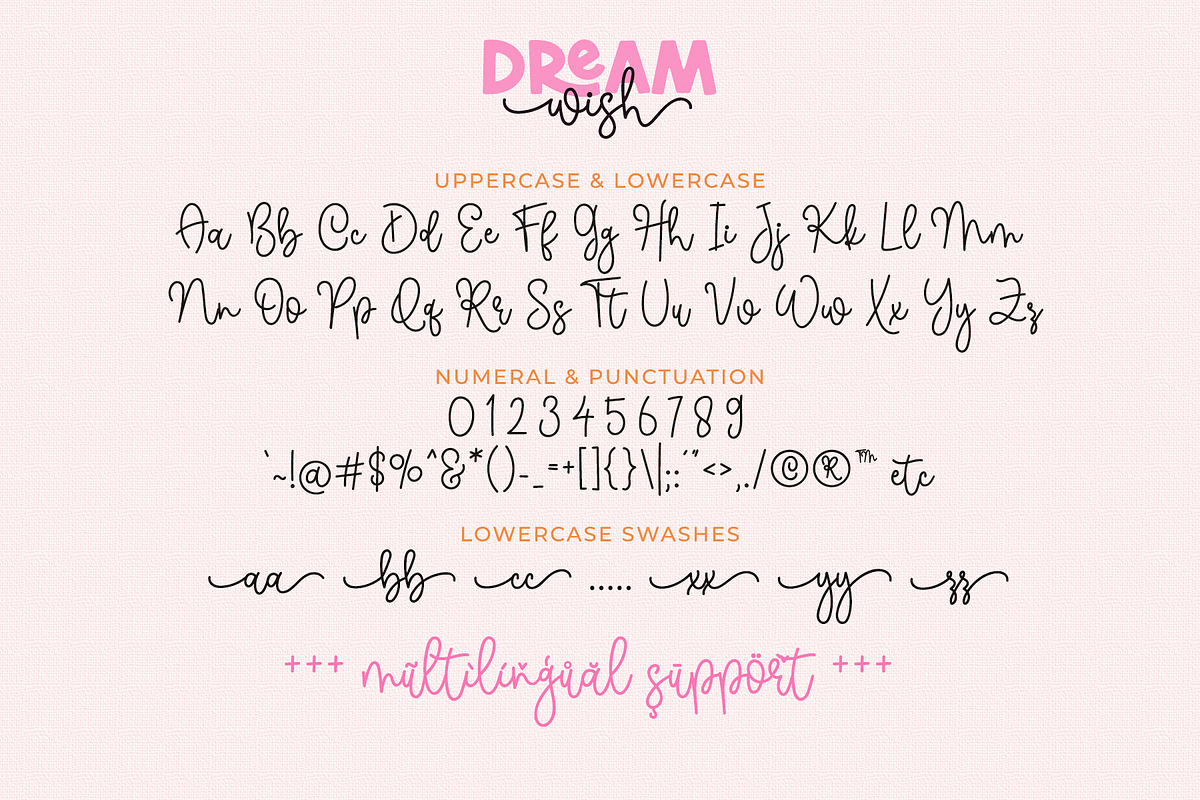 DReAM
wish
UPPERCASE & LOWERCASE
Aa Bb Cc Dd Ee Ff Gg Hh Ii Jj Kk Ll Mm
Nn Oo Pp Qq Rr Ss Tt Uu Vv Ww Xx Yy Zz
NUMERAL & PUNCTUATION
0 1 2 3 4 5 6 7 8 9
`~!@#$%^&*()-_=+[]{}\|;:'"<>,./©®™ etc
LOWERCASE SWASHES
aa bb cc ..... xx yy zz
+++ mũltìlíňģůăl şūppöřť +++